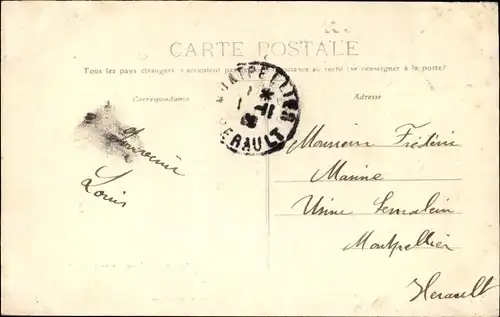 CARTE POSTALE
Tous les pays étrangers n'acceptent pas la correspondance au recto (se renseigner à la poste)
Correspondance
Adresse
MONTPELLIER
HERAULT
Souvenir
Louis
Monsieur Frédéric
Marine
Usine
Montpellier
Herault